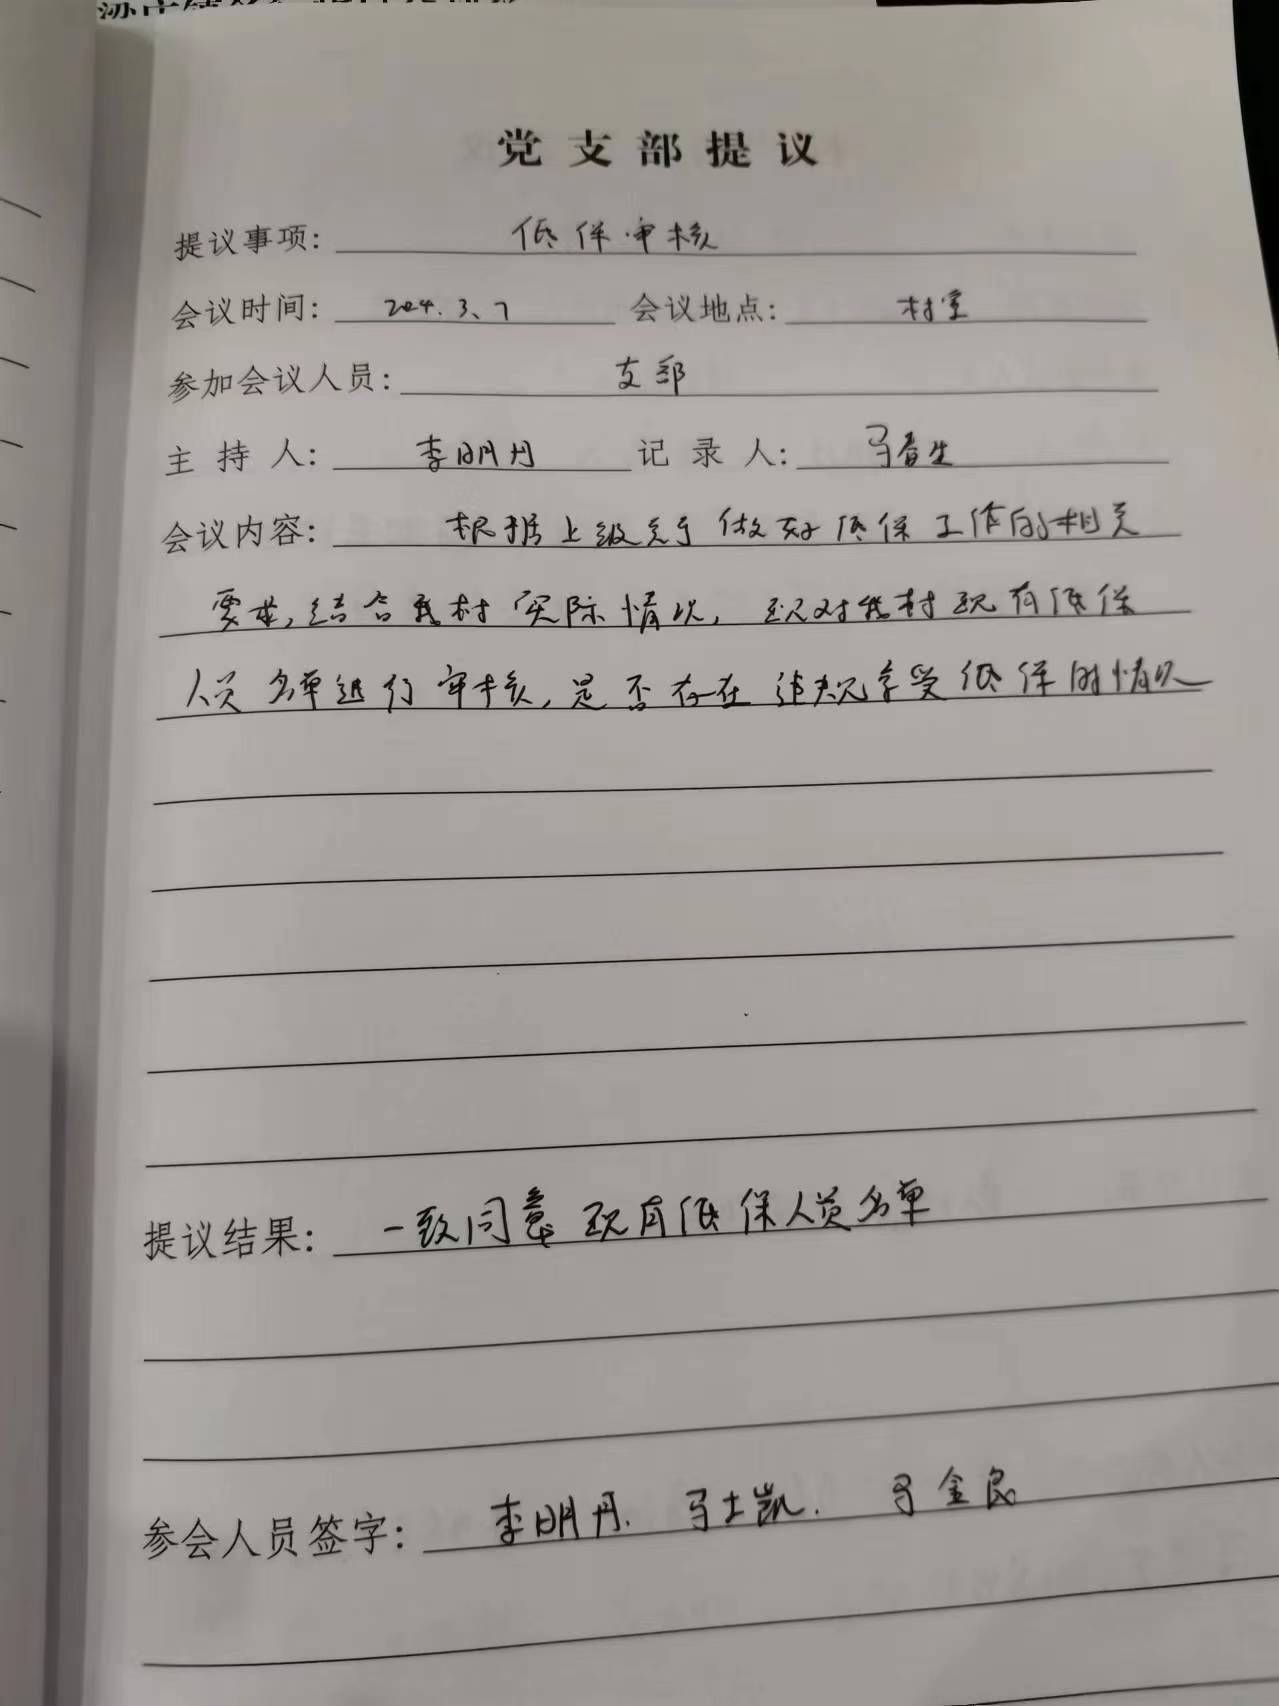 党支部提议
提议事项: 低保审核
会议时间: 2024.3、7 会议地点: 村室
参加会议人员: 支部
主 持 人: 李明丹 记 录 人: 马春生
会议内容: 根据上级关于做好低保工作的相关
要求,结合我村实际情况,现对我村现有低保
人员名单进行审核,是否存在违规享受低保的情况
提议结果: 一致同意现有低保人员名单
参会人员签字: 李明丹. 马士凯. 马金良